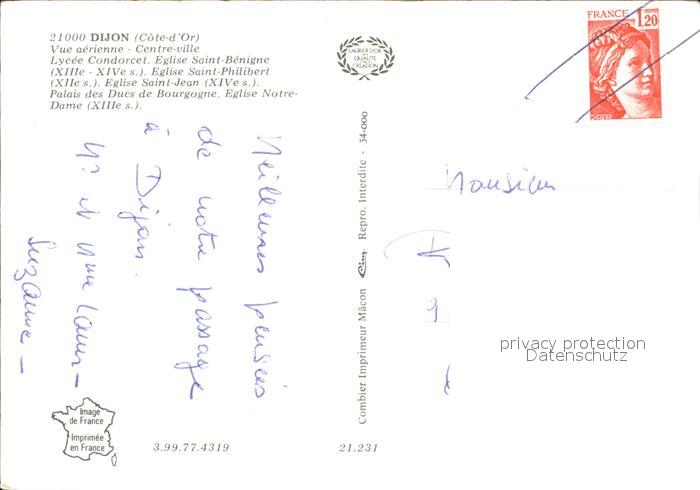 21000 DIJON (Côte-d'Or)
Vue aérienne - Centre-ville
Lycée Condorcet. Eglise Saint-Bénigne
(XIIIe - XIVe s.). Eglise Saint-Philibert
(XIIe s.). Eglise Saint-Jean (XIVe s.).
Palais des Ducs de Bourgogne. Eglise Notre-
Dame (XIIIe s.).
LAURIER D'OR
DE LA
QUALITÉ
CRÉATION
FRANCE
1,20
POSTES
Meilleures pensées
de notre passage
à Dijon.
Mr et Mme
Suzanne -
Combier Imprimeur Mâcon Cim Repro. Interdite - 34-000
Monsieur
privacy protection
Datenschutz
Image
de France
Imprimée
en France
3.99.77.4319
21.231